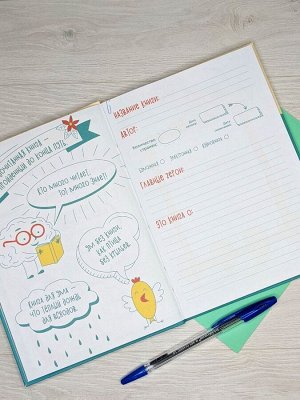 КНИГА –
ДО КОНЦА ПУТЬ.
КТО МНОГО ЧИТАЕТ,
ТОТ МНОГО ЗНАЕТ!
УМ БЕЗ КНИГИ,
КАК ПТИЦА
БЕЗ КРЫЛЬЕВ.
КНИГА ДЛЯ УМА –
ЧТО ТЁПЛЫЙ ДОЖДЬ
ДЛЯ ВСХОДОВ.
НАЗВАНИЕ КНИГИ:
АВТОР:
КОЛИЧЕСТВО
СТРАНИЦ:
ДАТА
ДАТА
ЭЛЕКТРОННАЯ
ГЛАВНЫЕ ГЕРОИ:
ЭТО КНИГА О: